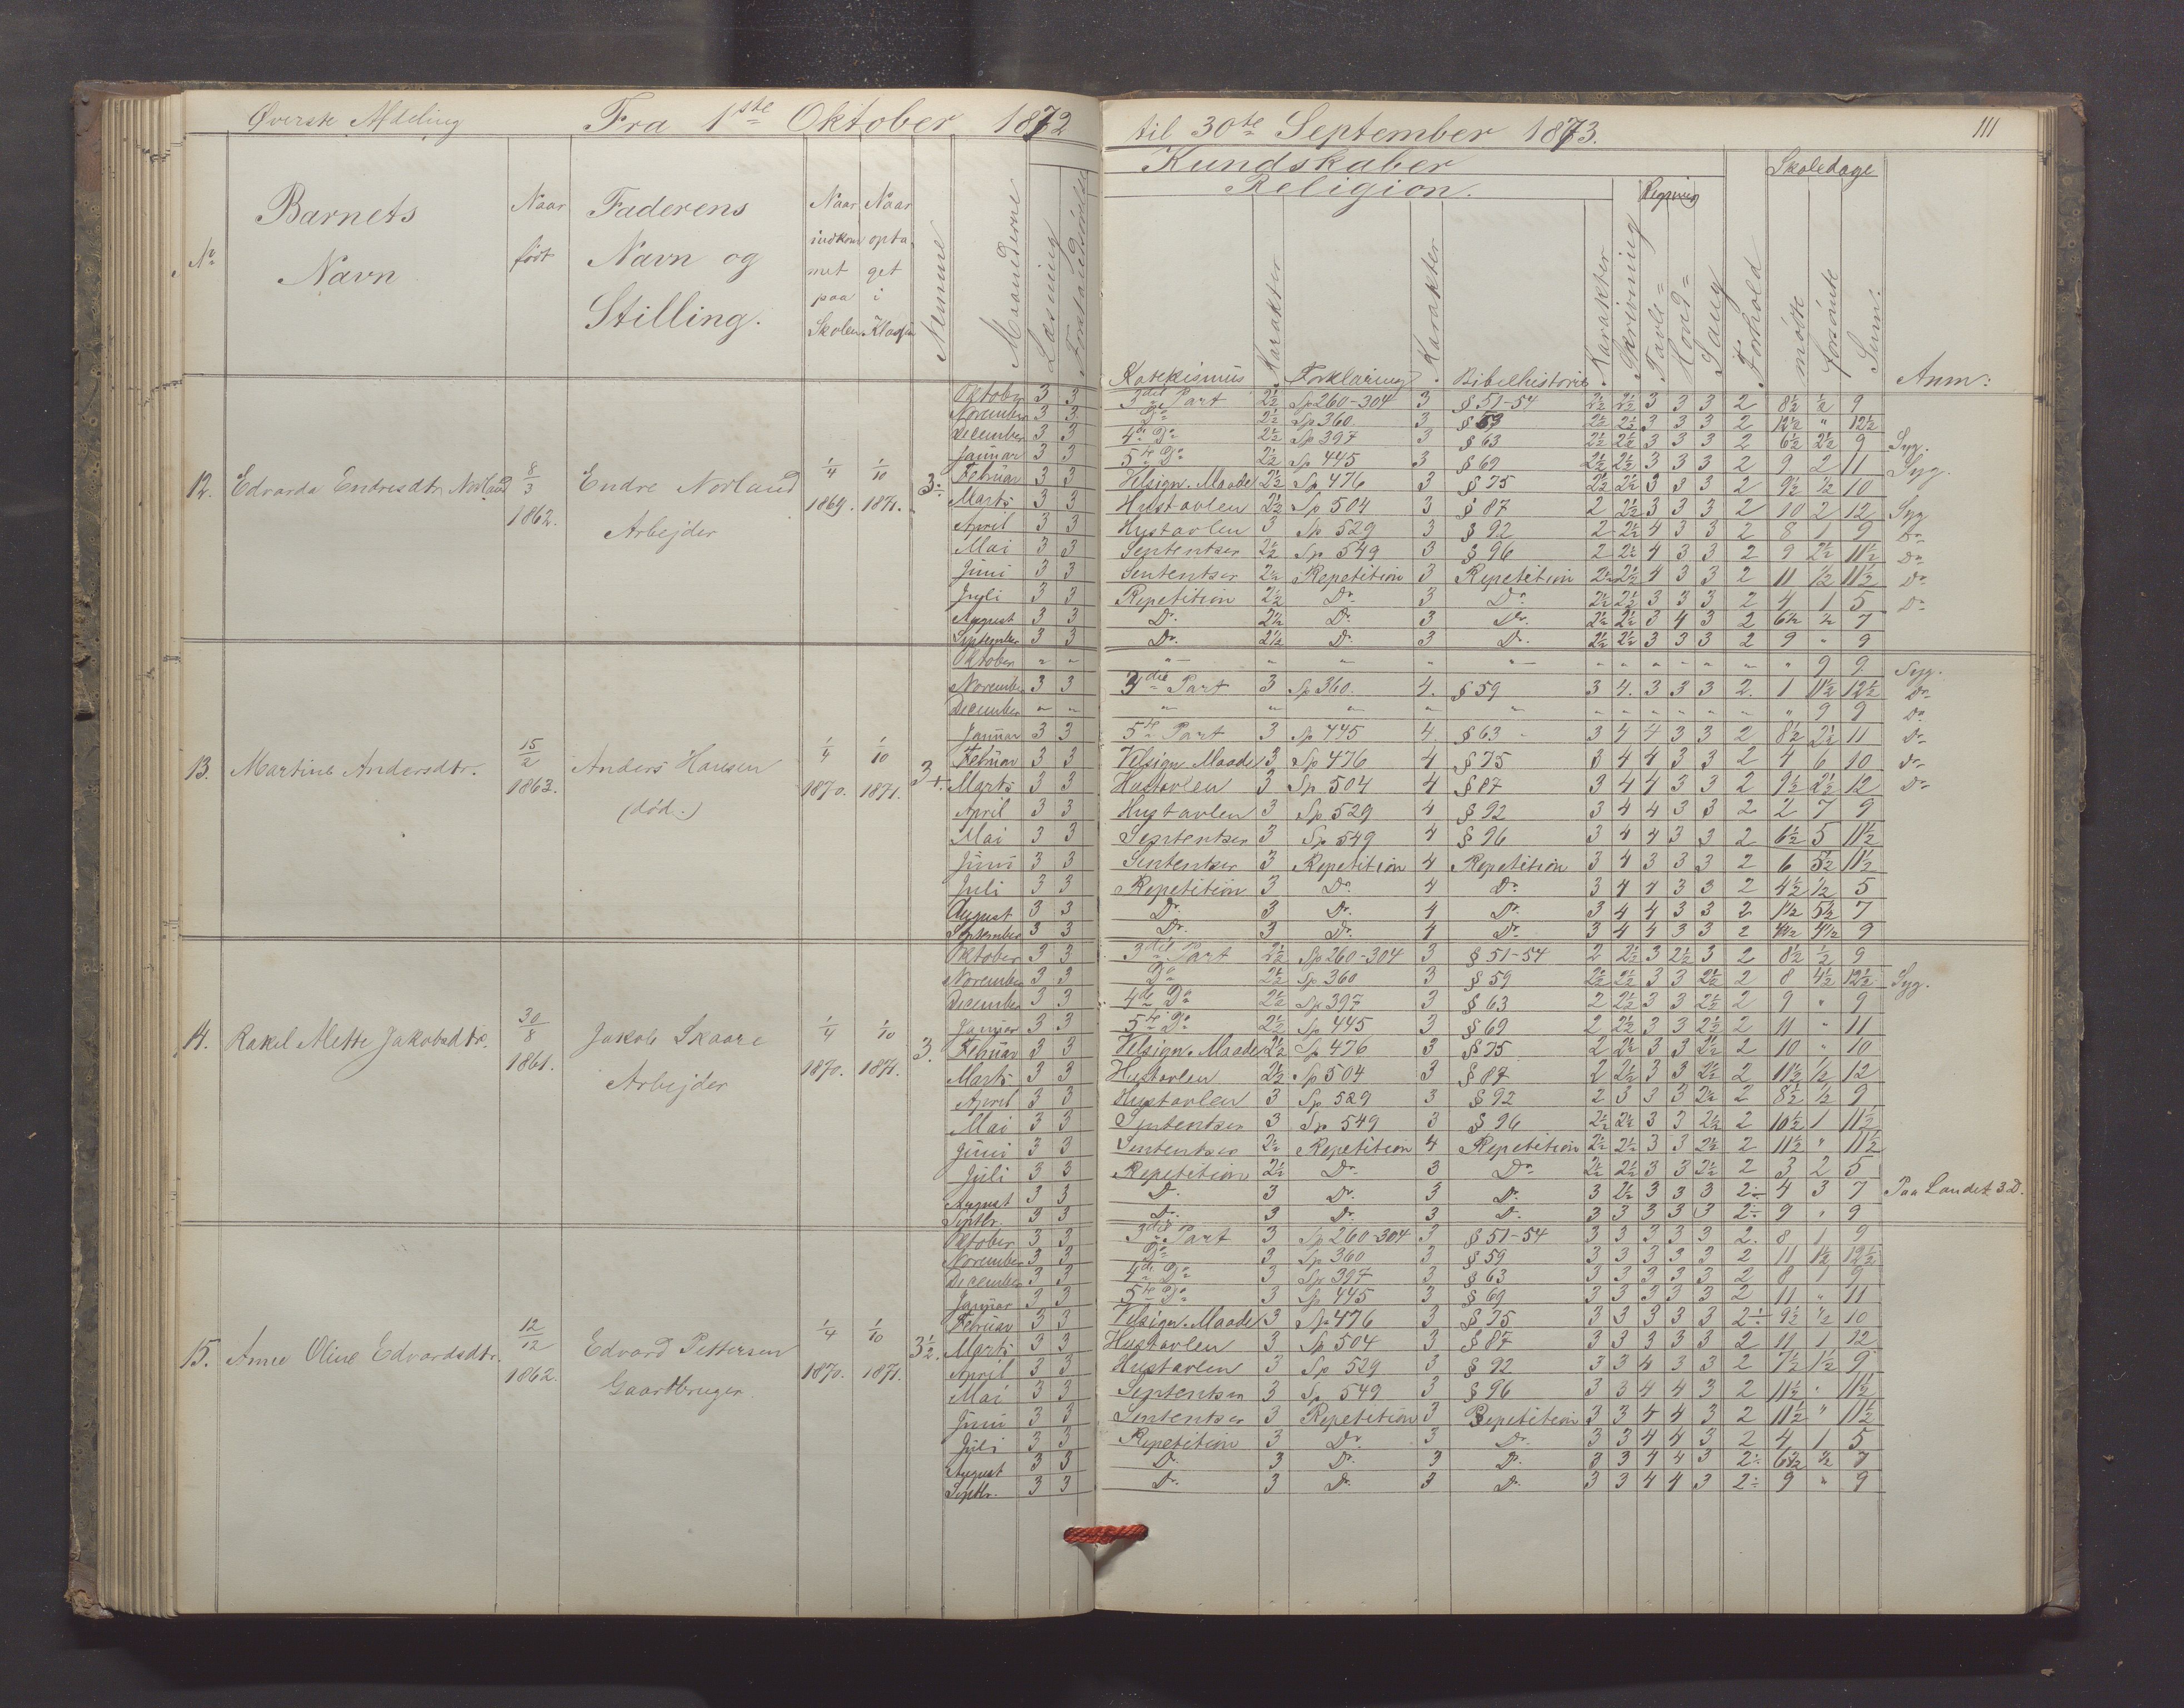 Øverste Afdeling Fra 1ste Oktober 1872 til 30te September 1873. 111
Kundskaber Skoledage
Religion. Regning
No Barnets Navn Naar født Faderens Navn og Stilling. Naar indkommet paa Skolen Naar optaget i Klassen Nemme Maanederne Læsning Forstandsøvelse Katekismus Karakter Forklaring Karakter Bibelhistorie Karakter Skrivning Tavle= Hoved= Sang Forhold mødte forsømte Sum: Anm:
12. Edvarda Endresdtr Norland 8/3 1862. Endre Norland Arbejder 1/4 1869. 1/10 1871. 3÷
Oktober 3 3 3die Part 2½ Sp 260-304 3 § 51-54 2½ 2½ 3 3 3 2 8½ ½ 9
November 3 3 Do 2½ Sp 360 3 § 59 2½ 2½ 3 3 3 2 12½ " 12½
December 3 3 4de Do 2½ Sp 397 3 § 63 2½ 2½ 3 3 3 2 6½ 2½ 9 Syg.
Januar 3 3 5te Do 2½ Sp 445 3 § 69 2½ 2½ 3 3 3 2 9 2 11 Syg.
Februar 3 3 Velsign. Maade 2½ Sp 476 3 § 75 2½ 2½ 3 3 3 2 9½ ½ 10
Marts 3 3 Hustavlen 2½ Sp 504 3 § 87 2 2½ 3 3 3 2 10 2 12 Syg
April 3 3 Hustavlen 3 Sp 529 3 § 92 2 2½ 4 3 3 2 8 1 9 Do
Mai 3 3 Sententser 2½ Sp 549 3 § 96 2 2½ 4 3 3 2 9 2½ 11½ Do
Juni 3 3 Sententser 2½ Repetition 3 Repetition 2½ 2½ 4 3 3 2 11 ½ 11½ Do
Juli 3 3 Repetition 2½ Do 3 Do 2½ 2½ 3 3 3 2 4 1 5 Do
August 3 3 Do 2½ Do 3 Do 2½ 2½ 3 4 3 2 6½ ½ 7
September 3 3 Do 2½ Do 3 Do 2½ 2½ 3 3 3 2 9 " 9
13. Martine Andersdtr. 15/2 1863. Anders Hansen (død.) 1/4 1870. 1/10 1871. 3+.
Oktober " " " " " " " " " " " " " " 9 9 Syg.
November 3 3 3die Part 3 Sp 360. 4. § 59 3 4. 3 3 3 2. 1 11½ 12½ Do
December " " " " " " " " " " " " " " 9 9 Do
Januar 3 3 5te Part 3 Sp 445 4. § 63 3 4 4 3 3 2 8½ 2½ 11 Do
Februar 3 3 Velsign. Maade 3 Sp 476 4 § 75 3 4 4 3 3 2 4 6 10 Do
Marts 3 3 Hustavlen 3 Sp 504 4 § 87 3 4 4 3 3 2 9½ 2½ 12 Do
April 3 3 Hustavlen 3 Sp 529 4 § 92 3 4 4 3 3 2 2 7 9
Mai 3 3 Sententser 3 Sp 549 4 § 96 3 4 4 3 3 2 6½ 5 11½
Juni 3 3 Sententser 3 Repetition 4 Repetition 3 4 3 3 3 2 6 5½ 11½
Juli 3 3 Repetition 3 Do 4 Do 3 4 4 3 3 2 4½ ½ 5
August 3 3 Do 3 Do 4 Do 3 4 4 3 3 2 1½ 5½ 7
September 3 3 Do 3 Do 4 Do 3 4 4 3 3 2 4½ 4½ 9
14. Rakel Mette Jakobsdtr. 30/8 1861. Jakob Skaare Arbejder 1/4 1870. 1/10 1871. 3.
Oktober 3 3 3die Part 2½ Sp 260-304 3 § 51-54 2 2½ 3 2½ 3 2 8½ ½ 9
November 3 3 Do 2½ Sp 360 3 § 59 2½ 2½ 3 3 2½ 2 8 4½ 12½ Syg.
December 3 3 4de Do 2½ Sp 397 3 § 63 2 2½ 3 3 2½ 2 9 " 9
Januar 3 3 5te Do 2½ Sp 445 3 § 69 2 2½ 3 3 2½ 2 11 " 11
Februar 3 3 Velsign. Maade 2½ Sp 476 3 § 75 2 2½ 3 3 2½ 2 10 " 10
Marts 3 3 Hustavlen 2½ Sp 504 3 § 87 2 2½ 3 3 2½ 2 11½ ½ 12
April 3 3 Hustavlen 3 Sp 529 3 § 92 2 3 3 3 2½ 2 8½ ½ 9
Mai 3 3 Sententser 3 Sp 549 3 § 96 2½ 2½ 3 3 2½ 2 10½ 1 11½
Juni 3 3 Sententser 2½ Repetition 4 Repetition 2½ 2½ 3 3 2½ 2 11½ " 11½
Juli 3 3 Repetition 2½ Do 3 Do 2½ 2½ 3 3 2½ 2 3 2 5
August 3 3 Do 3 Do 3 Do 3 2½ 3 3 3 2÷ 4 3 7 Paa Landet 3 D.
Septbr. 3 3 Do 3 Do 3 Do 3 3 3 3 3 2÷ 9 " 9
15. Anne Oline Edvardsdtr. 12/12 1862. Edvard Pettersen Gaardbruger 1/4 1870. 1/10 1871. 3½.
Oktober 3 3 3die Part 3 Sp 260-304 3 § 51-54 3 3 3 3 3 2. 8 1 9
November 3 3 Do 3 Sp 360 3 § 59 3 3 3 3 3 2 11 1½ 12½
December 3 3 4de Do 3 Sp 397 3 § 63 3 3 3 3 3 2 8 1 9
Januar 3 3 5te Do 3 Sp 445 3 § 69 3 3 3 3 3 2 11 " 11
Februar 3 3 Velsign. Maade 3 Sp 476 3 § 75 3 3 3 3 3 2÷ 9½ ½ 10
Marts 3 3 Hustavlen 3 Sp 504 3 § 87 3 3 3 3 3 2 11 1 12
April 3 3 Hustavlen 3 Sp 529 3 § 92 3 3 4 3 3 2 7½ 1½ 9
Mai 3 3 Sententser 3 Sp 549 3 § 96 3 3 4 4 3 2 11½ " 11½
Juni 3 3 Sententser 3 Repetition 3 Repetition 3 3 4 4 3 2 11½ " 11½
Juli 3 3 Repetition 3 Do 3 Do 3 3 4 4 3 2 4 1 5
August 3 3 Do 3 Do 3 Do 3 3 4 4 3 2÷ 6½ ½ 7
Septbr. 3 3 Do 3 Do 3 Do 3 3 4 4 3 2÷ 9 " 9